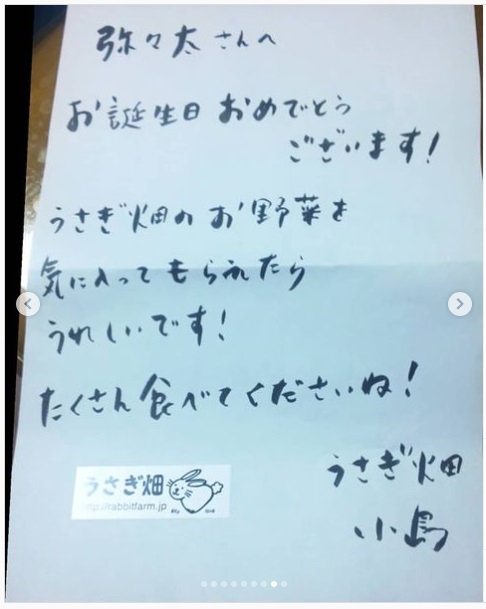 弥々太さんへ
お誕生日おめでとう
ございます!
うさぎ畑のお野菜を
気に入ってもらえたら
うれしいです!
たくさん食べてくださいね!
うさぎ畑
小島
うさぎ畑
http://rabbitfarm.jp